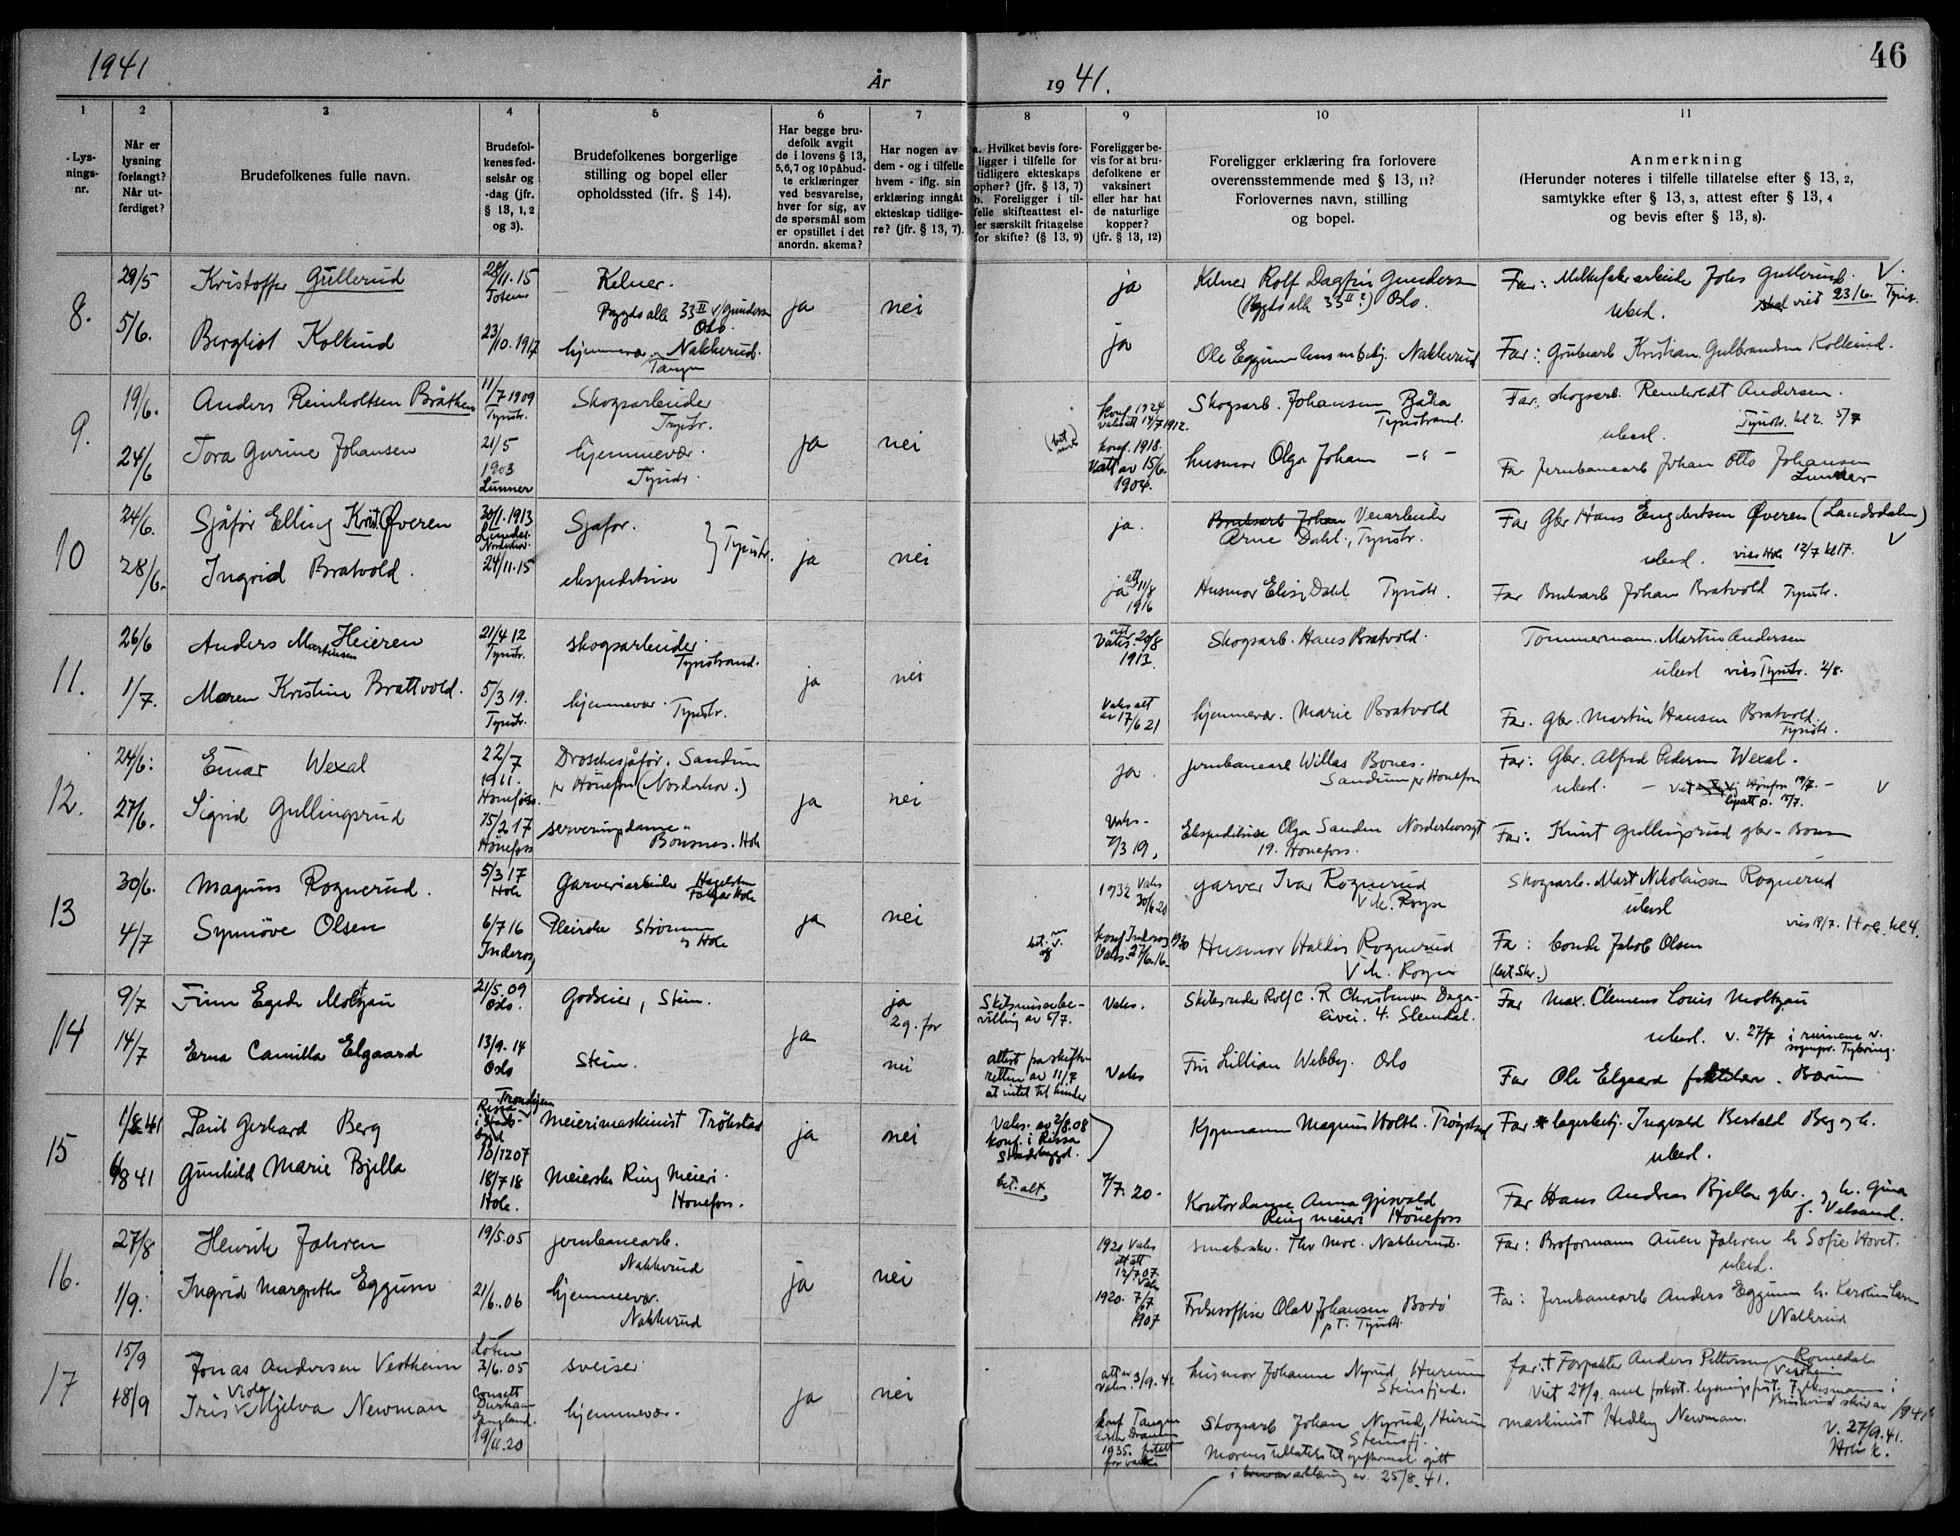 1941
År
1941.
46
1
2
3
4
5
6
7
8
9
10
11
Lys-
nings-
nr.
Når er
lysning
forlangt?
Når ut-
ferdiget?
Brudefolkenes fulle navn.
Brudefol-
kenes fød-
selsår og
-dag (jfr.
§ 13, 1, 2
og 3).
Brudefolkenes borgerlige
stilling og bopel eller
opholdssted (ifr. § 14).
Har begge bru-
defolk avgit
de i lovens § 13,
5,6,7 og 10 påbud-
te erklæringer
ved besvarelse,
hver for sig, av
de spørsmål som
er opstillet i det
anordn. skema?
Har nogen av
dem - og i tilfelle
hvem - iflg. sin
erklæring inngåt
ekteskap tidlige-
re? (jfr. § 13, 7).
a. Hvilket bevis fore-
ligger i tilfelle for
tidligere ekteskaps
ophør? (jfr. § 13, 7)
b. Foreligger i til-
felle skifteattest el-
ler særskilt fritagelse
for skifte? (§ 13, 9)
Foreligger be-
vis for at bru-
defolkene er
vaksinert
eller har hat
de naturlige
kopper?
(jfr. § 13, 12)
Foreligger erklæring fra forlovere
overensstemmende med § 13, 11?
Forlovernes navn, stilling
og bopel.
Anmerkning
(Herunder noteres i tilfelle tillatelse efter § 13, 2,
samtykke efter § 13, 3, attest efter § 13, 4
og bevis efter § 13, 8).
8.
29/5
5/6.
Kristoffer Gullerud
Bergliot Kolkind
28/11.15
Toten
23/10.1917
Kelner.
Bygdø alle 33 II v/Gundersen
Oslo.
hjemmevær. Nakkerud.
Tangen
ja
nei
ja
ja
Kelner Rolf Dagfin Gundersen
(Bygdø alle 33 II?) Oslo.
Ole Eggum Nakkerud
Far: Gullerud. V.
ubesl. viet 23/6. Tyristr.
Far: Grubearb Kristian Gulbrandsen Kolkind.
9.
19/6.
24/6
Anders Reinholtsen Bråthen
Tora Gurine Johansen
11/7 1909
Tyristr.
21/5
1903
Lunner
Skogsarbeider
Tyristr.
hjemmevær.
Tyristr.
ja
nei
konf. 1924
Vaksatt 14/7 1912.
konf. 1918.
Vatt av 15/6.
1904.
Skogsarb. Johansen
Tyristrand.
husmor Olga Johan - " -
Far: skogsarb. Reinholdt Andersen.
ubesl. Tyristr. kl 2. 5/7
Far Jernbanearb Johan Otto Johansen
Lunner
10
24/6.
28/6.
Sjåfør Elling Krist. Øveren
Ingrid Bratvold.
30/1.1913
24/11.15
Sjåfør.
ekspeditrise
Tyristr.
ja
nei
ja.
ja att 11/8
1916
Bruksarb Johan Veiarbeider
Arne Dahl., Tyristr.
Husmor Elise Dahl Tyristr.
Far Gbr Hans Engebretsen Øveren (Landsdalen)
ubesl. vies Hole 12/7 kl 17. V
Far Bruksarb Johan Bratvold Tyristr.
11.
26/6
1/7.
Anders Martinsen Heieren
Maren Kristine Brattvold.
21/4 12
Tyristr.
5/3 19.
Tyristr.
skogsarbeider.
Tyristrand.
hjemmevær. Tyristr.
ja
nei
att
Vaks. 20/8
1913.
Vaks att
av 17/6 21
Skogsarb. Hans Bratvold.
hjemmevær. Marie Bratvold
Tømmermann. Martin Andersen
ubesl vies Tyristr. 2/8.
Far. Gbr. Martin Hansen Bratvold.
Tyristr.
12.
24/6.
27/6.
Einar Wexal
Sigrid Gullingsrud
22/7
1911.
Hønefoss.
15/2 17
Hønefoss
Droschesjåfør. Sandum
pr Hønefoss (Norderhov.)
serveringsdame
Bønsnes. Hole
ja
nei
ja.
Vaks.
7/3 19.
jernbanearb Willas Bones.
Sandum pr Hønefoss
Ekspeditrise Olga Sanden Norderhovsgt
19. Hønefoss.
Far: Gbr. Alfred Pedersen Wexal.
ubesl. - viet Hønefoss 19/7. - V
Far: Knut Gullingsrud gbr - Bønsn
13
30/6.
4/7
Magnus Rognerud.
Synnøve Olsen
5/3 17
Hole
6/7 16
Inderøy
Garveriarbeider
Pleierske Strømmen
Hole
ja
nei
1932 Vaks
30/6 20
konf Inderøy 1930
Vaks. 27/6.16.
garver Ivar Rognerud
Vik. Røyse
Husmor Haldis Rognerud
Vik. Røyse
Skogsarb. Mart Nikolaissen Rognerud
ubesl
vies 19/7. Hole. kl 4.
Fa: bonde Jakob Olsen
14
9/7
14/7
Finn Egede Moltzau
Erna Camilla Elgaard
21/5.09
Oslo.
13/9.14
Oslo
Godseier, Stein.
Stein.
ja
ja
2 g. for
nei
Skilsmissebe-
villing av 5/7.
attest fra skifte-
retten av 11/7
at intet til hinder
Vaks.
Vaks
Skibsreder Rolf C. R Christensen Daga-
livei. 4. Slemdal.
Frk Lillian Webby. Oslo
(bet Skr.)
Far Max. Clemens Louis Moltzau
ubesl. v. 27/7 i ruinene v.
sognepr. Tybring.
Far Ole Elgaard . Bærum
15
1/8 41
6/8 41
Paul Gerhard Berg
Gunhild Marie Bjella
Rissa
10/12 07
18/7 18
Hole.
Meierimaskinist Trøkstad
Meierske Ring Meieri.
Hønefoss.
ja
nei
Vaks. av 2/8.08
konf. i Rissa
Stadsbygd.
bet. alt.
7/7. 20.
Kjøpmann Magnus Holth. Trøgstad
Kontordame Anna Gjesvold
Ring meieri Hønefoss
Far lagerbetj. Ingvald Bertald Berg og h.
ubesl.
Far Hans Andreas Bjella gbr. og h. Gina
f. Velsand.
16.
27/8
1/9.
Henrik Jahren
Ingrid Margrethe Eggum
19/5.05
21/6.06
jernbanearb.
Nakkerud
hjemmevær.
Nakkerud
ja
nei
1920 Vaks
att
12/7 07.
1920. 7/7
1907
Thv Moe. Nakkerud.
Olav Johansen Bodø
p.T. Tyristr.
Far: Broformann Auen Jahren h Sofie Hovet.
ubesl.
Far: Jernbanearb Anders Eggum h. Karoline Larsen
Nakkerud
17
15/9
18/9
Jonas Andersen Vestheim
Iris Viola Mjelva Newman
Løten
3/6.05
Consett
Durham
England.
19/11.20
sveiser
hjemmevær.
ja
nei
att av
Vaks. 3/9.41.
konf Tangen
kirke Drammen
1935. fritatt
for vaks
husmor Johanne Nyrud Hurum
Steinsfjord.
Skogsarb Johan Nyrud, Hurum
Steinsfj.
Morens tillatelse til ekteskap gitt
i erklæring av 25/8.41.
far: † Forpakter Anders Pettersen Romedal
Vestheim
Viet 27/9. med forkort. lysningsfrist. Fylkesmannen i
Buskerud skriv av /9 41
maskinist Hedley Newman.
V. 27/9.41.
Hole k.